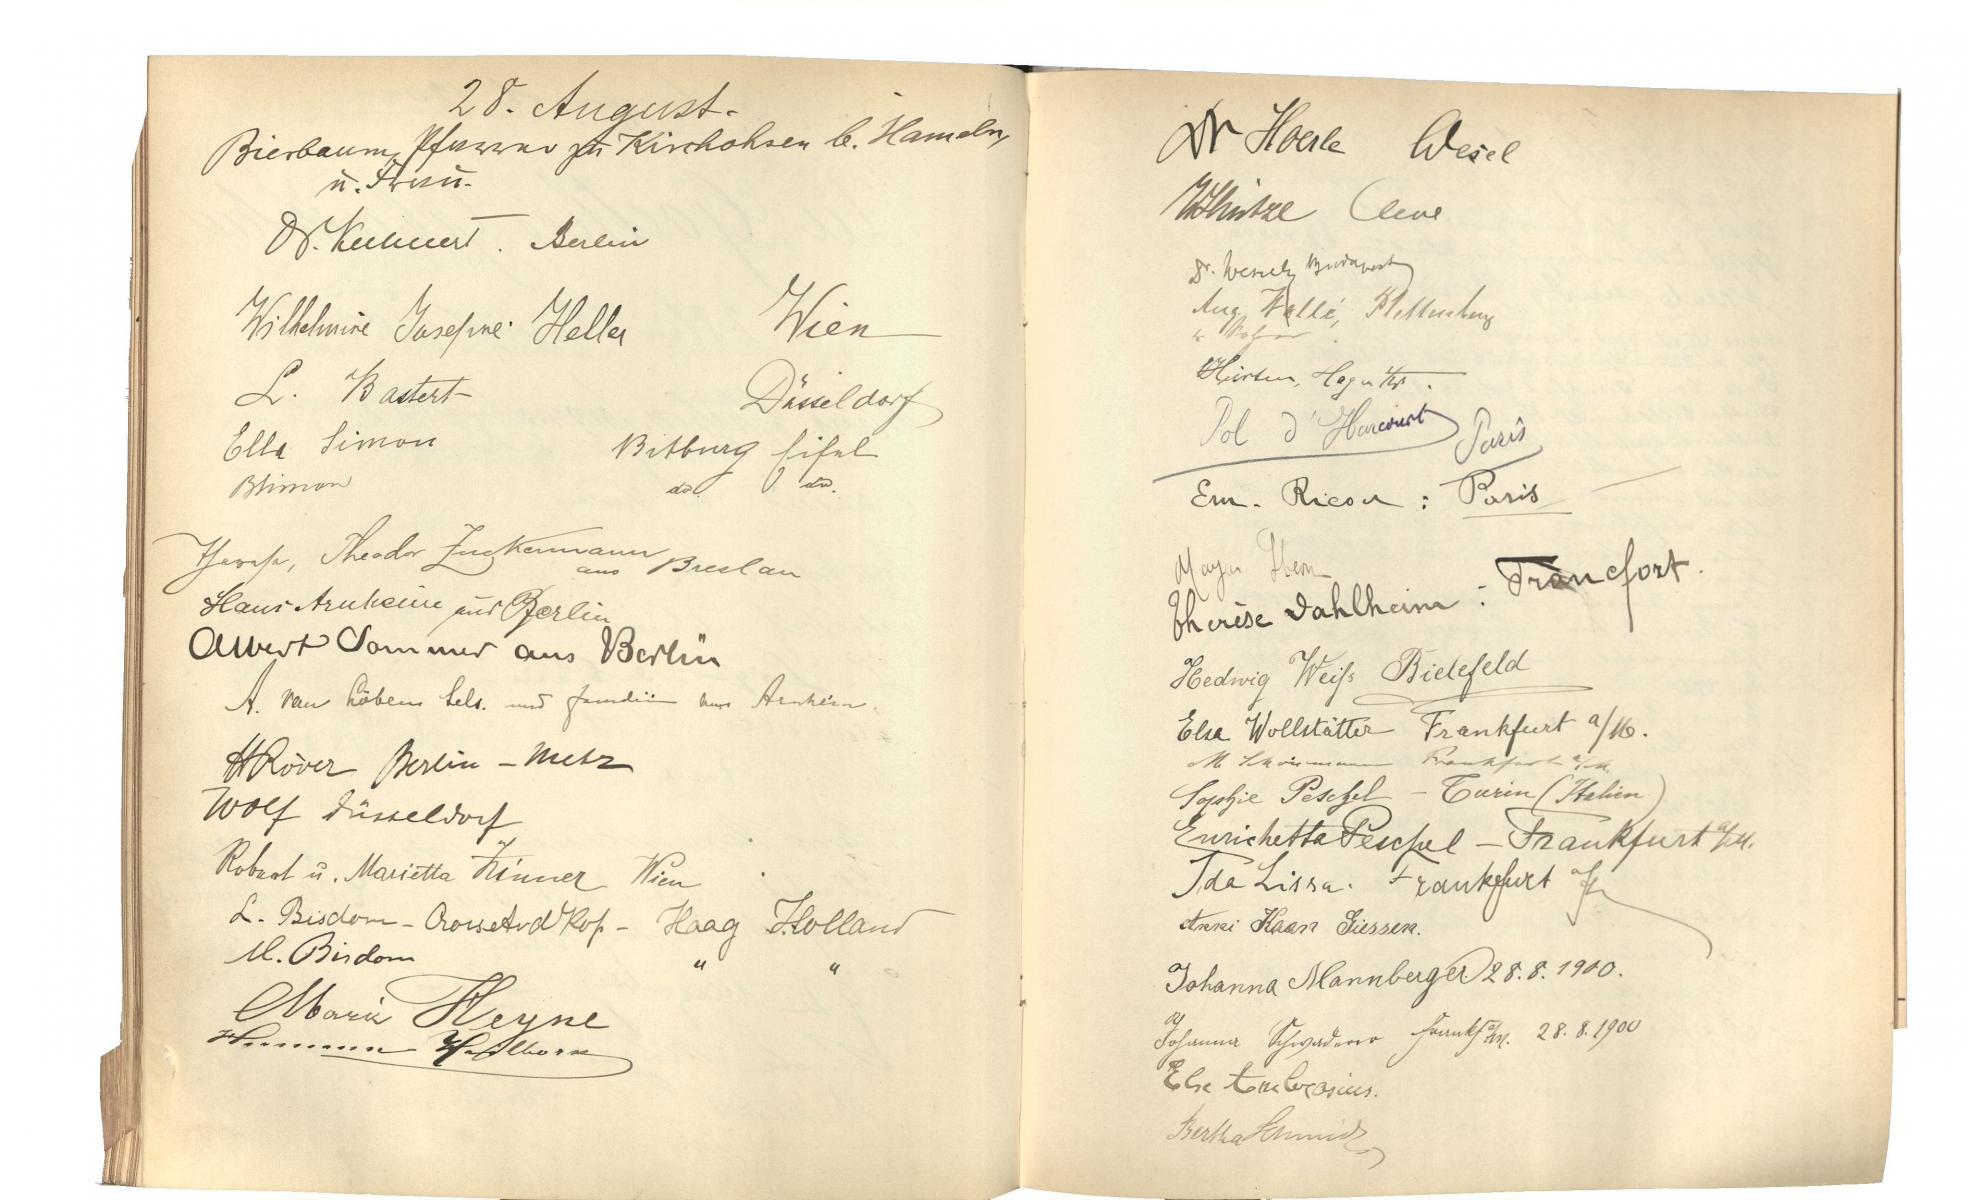 28. August.
Bierbaum, Pfarrer zu Kirchohsen b. Hameln
u. Frau.
Dr. Kuhnert. Berlin
Wilhelmine Josefine Heller Wien
L. Bastert Düsseldorf
Ella Simon Bitburg Eifel
BSimon do. do.
Theodor Zuckermann
aus Breslau
Hans Arnheim aus Berlin
Albert Sommer aus Berlin
A. van Löben Sels. und familie aus Arnheim.
HRöver Berlin - Metz
Wolf Düsseldorf
Robert u. Marietta Kinner Wien
L. Bisdom - Haag Holland
M. Bisdom " "
Marie Heyne
Hermann Heilborn
Dr Hoerle Wesel
Cleve
Dr. Budapest
Aug. Plettenberg
Hagen
Pol d'Harcourt Paris
Em. Ricou : Paris
Therèse Dahlheim : Francfort.
Hedwig Weiß Bielefeld
Elsa Wollstätter Frankfurt a/M.
M Frankfurt a/M.
Sophie Peschel - Turin (Italien)
Enrichetta Peschel - Frankfurt a/M.
Ida Lissa. Frankfurt a/M
Anni Kaan Giessen.
Johanna Mannberger 28.8.1900.
Johanna Frankf a/M. 28.8.1900
Else Ambrosius.
Bertha Schmidt